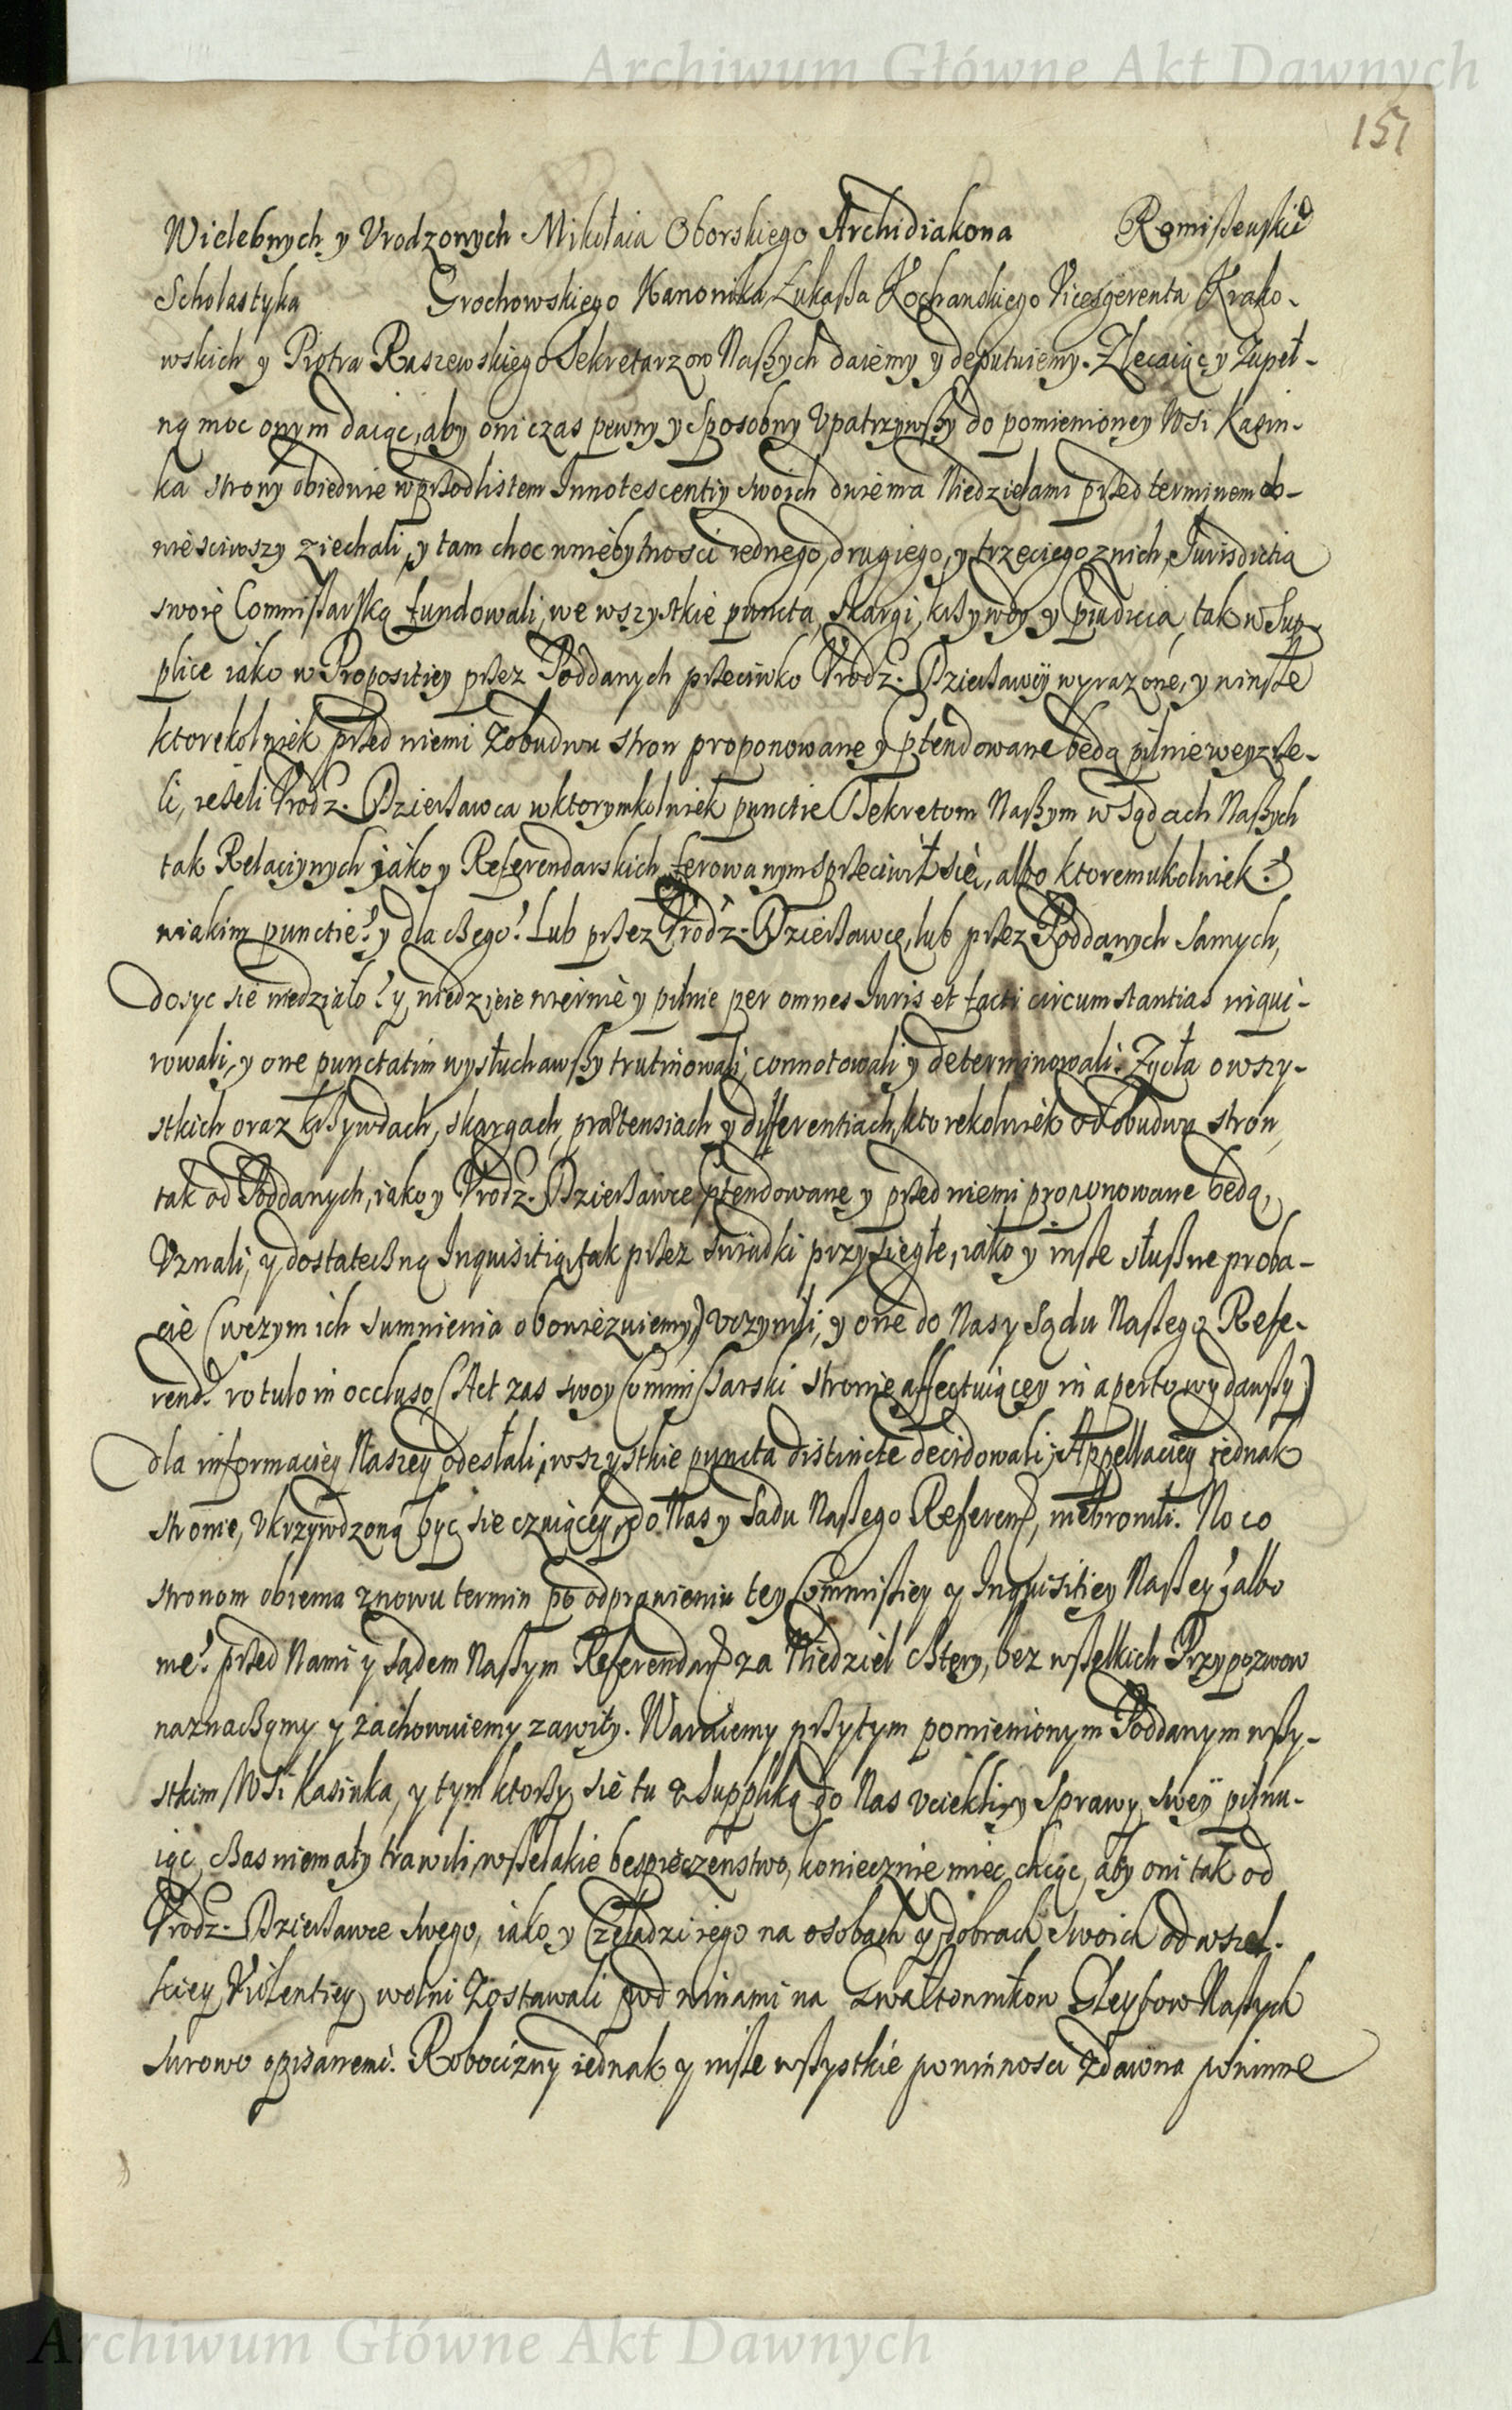 Archiwum Główne Akt Dawnych
151
Wielebnych y Vrodzonych Mikołaia Oborskiego Archidiakona Romiszewskie
Scholastyka Grochowskiego Kanonika, Łukaßa Kochanskiego Vicesgerenta Krako-
wskich y Piotra Raszewskiego Sekretarzow Naßych daiemy y deputuiemy. Zlecaiąc y zupeł-
ną moc onym daiąc, aby oni czas pewny y sposobny vpatrzywßy do pomienioney Wsi Kasin-
ka strony obiedwie wprzod listem Innotescentiy swoich dwiema Niedzielami przed terminem ob-
wieściwszy ziechali, y tam choc w niebytnosci iednego, drugiego, y trzeciego z nich, Jurisdictia
swoię Commißarską fundowali, we wszystkie puncta, skargi, krzywdy y praeiudicia, tak w Sup-
plice iako w Propositiey przez Poddanych przeciwko Vrodz. Dzierżawcy wyrazone, y w inße
ktorekolwiek przed niemi z obudwu stron proponowane y praetendowane będą pilnie weyzrze-
li, ieżeli Vrodz. Dzierżawca w ktorymkolwiek punctie Dekretom Naßym w Sądach Naßych
tak Relacyinych iako y Referendarskich ferowanym sprzeciwił się, albo ktoremukolwiek?
w iakim punctie? y dla czego? Lub przez Vrodz. Dzierżawcę, lub przez Poddanych samych,
dosyc się niedziało? y niedzieie wiernie y pilnie per omnes Iuris et facti circumstantias inqui-
rowali, y one punctatim wysłuchawßy trutinowali, connotowali y determinowali. Zgoła o wszy-
stkich oraz krzywdach, skargach, praetensiach y differentiach, ktorekolwiek od obudwu stron,
tak od Poddanych, iako y Vrodz. Dzierżawce praetendowane y przed niemi proponowane będą,
Vznali, y dostateczną Inquisitią, tak przez swiadki przysięgłe, iako y inße słußne proba-
cie (w czym ich sumnienia obowięzuiemy) vczynili, y one do Nas y Sądu Naßego Refe-
rend. rotulo in occluso (Act zas swoy Commißarski stronie affectuiącey in aperto wydawßy)
dla informaciey Naszey odesłali, wszystkie puncta distincte decidowali; Appellaciey iednak
stronie, vkrzywdzoną być się czuiącey, do Nas y Sadu Naßego Referend, niebronili. Na co
stronom obiema znowu termin po odprawieniu tey Commißiey y Inquisitiey Naßey? albo
nie? przed Nami y Sądem Naßym Referendar. za Niedziel cztery, bez wßelkich Przypozwow
naznaczamy y zachowuiemy zawity. Waruiemy przytym pomienionym Poddanym wßy-
stkim Wsi Kasinka, y tym ktorzy się tu z Suppliką do Nas vciekli, y Sprawy swey pilnu-
iąc, czas niemały trawili, wßelakie bespieczenstwo, koniecznie miec chcąc, aby oni tak od
Vrodz. Dzierżawce swego, iako y Czeladzi iego na osobach y dobrach swoich od wszel-
kiey Violentiey wolni zostawali pod winami na Gwałtownikow Gleytow Naßych
surowo opisanemi. Robocizny iednak y inße wßystkie powinnosci zdawna powinne
Archiwum Główne Akt Dawnych